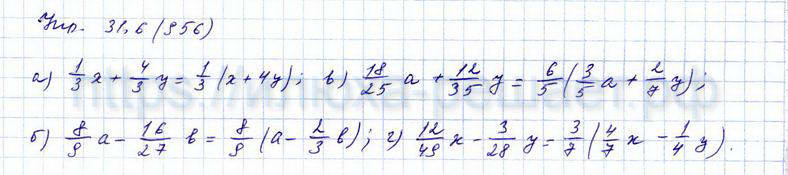 Упр. 31.6 (956)
а) 1/3 x + 4/3 y = 1/3 (x + 4y); в) 18/25 a + 12/35 y = 6/5 (3/5 a + 2/7 y);
б) 8/9 a - 16/27 b = 8/9 (a - 2/3 b); г) 12/49 x - 3/28 y = 3/7 (4/7 x - 1/4 y).